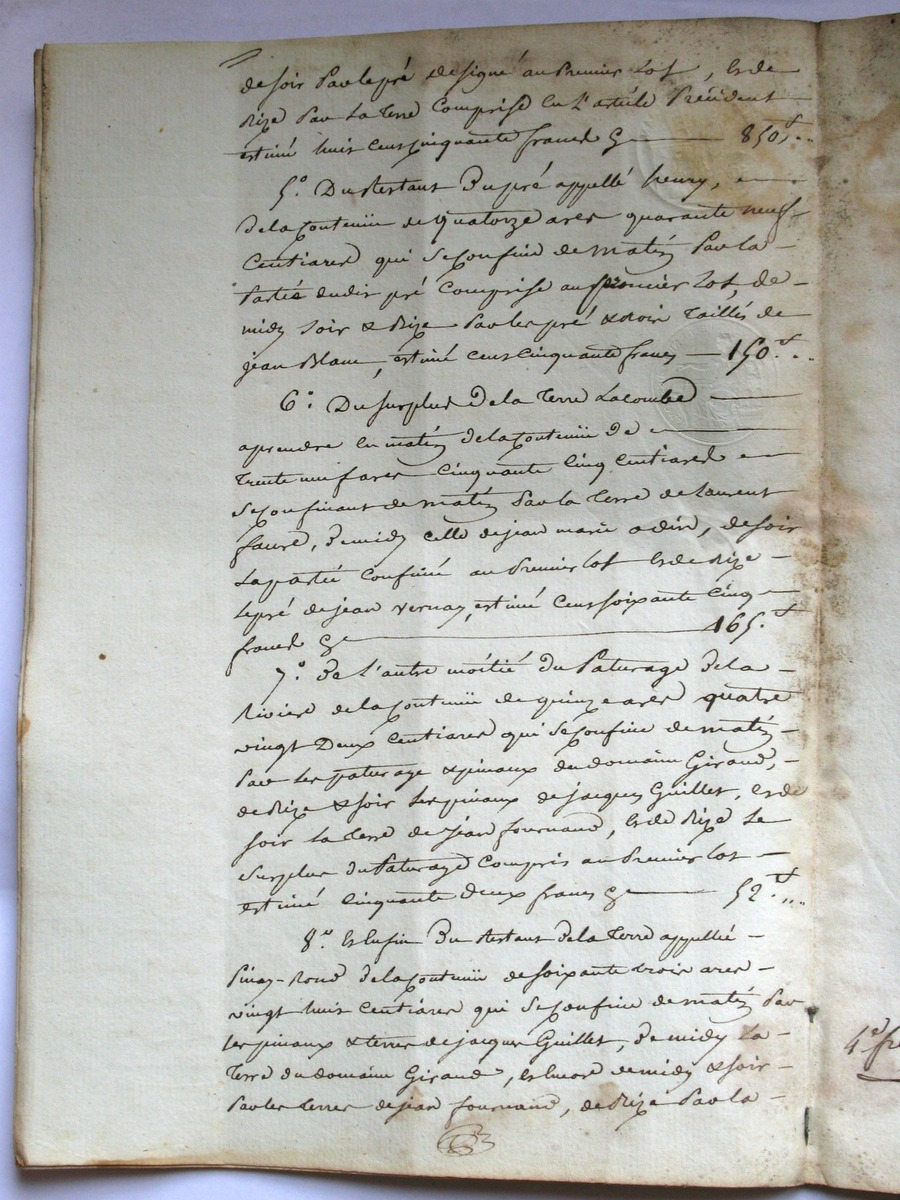 de soir par le pré designé au premier lot, et de
Bize par la terre comprise en l'article précédent
estimé huit cent cinquante francs cy 850,,
5.° Du restant du pré appellé henry,
de la contenue de quatorze ares quarante neuf
centiares qui se confine de matin par la
partie dudit pré comprise au premier lot, de
midy soir & Bize par les pré & bois taillés de
jean Blanc, estimé cent cinquante francs 150.
6.° Du surplus de la terre Lacombe
aprendre en matin de la contenue de
trente neuf ares cinquante cinq centiares
se confinant de matin par la terre de laurent
faure, de midy celle de jean marie odin, de soir
la partie confinée au premier lot et de Bize
le pré de jean vernay, estimé cent soixante cinq
francs cy 165.
7.° de l'autre moitié du Paturage de la
Riviere de la contenue de quinze ares quatre
vingt deux centiares qui se confine de matin
par les paturage & pinaux du domaine Giraud,
de Bize & soir les pinaux de jacques Guillet, et de
soir la terre de jean fournand, et de Bize le
surplus du Paturage compris au premier lot
estimé cinquante deux francs cy 52.
8.° et enfin du restant de la terre appellée
Pinay-rond de la contenue de soixante trois ares
vingt huit centiares qui se confine de matin par
les pinaux & terres de jacques Guillet, de midy la
terre du domaine Giraud, encore de midy & soir
par les terres de jean fournand, de Bize par la
4.e fr